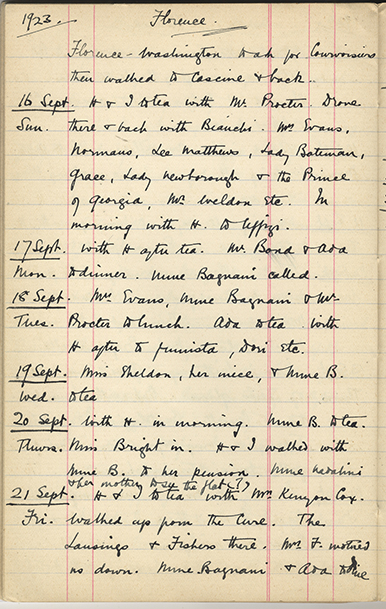 1923. Florence.
Florence - Washington to ask for
then walked to Cascine & back.
16 Sept. H & I to tea with Mr. Procter. Drove
Sun. there & back with Bianchi. Mrs Evans,
Normans, Lee Matthews, Lady Bateman,
Grace, Lady Newborough & the Prince
of Georgia, Mr. Weldon etc. In
morning with H. to Uffizi.
17 Sept. With H after tea. Mr. Bond & Ada
Mon. to dinner. Mme Bagnani called.
18 Sept. Mrs Evans, Mme Bagnani & Mr
Tues. Procter to lunch. Ada to tea. With
H after to fumista, Dori etc.
19 Sept. Miss Sheldon, her niece, & Mme B.
Wed. to tea
20 Sept. With H. in morning. Mme B. to tea.
Thurs. Miss Bright in. H & I walked with
Mme B. to her pension. Mme
& her mother to see the flat (?)
21 Sept. H & I to tea with Mrs. Kenyon Cox.
Fri. Walked up from the Cure. The
Lansings & Fishers there. Mrs F. motored
us down. Mme Bagnani & Ada to dine